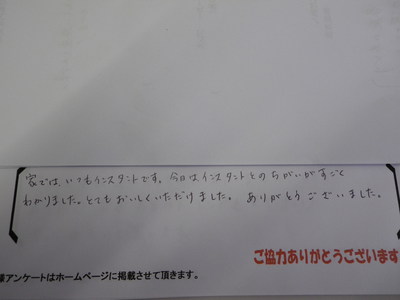 家では、いつもインスタントです。今日はインスタントとのちがいがすごく
わかりました。とてもおいしくいただけました。 ありがとうございました。
ご協力ありがとうございます
様アンケートはホームページに掲載させて頂きます。